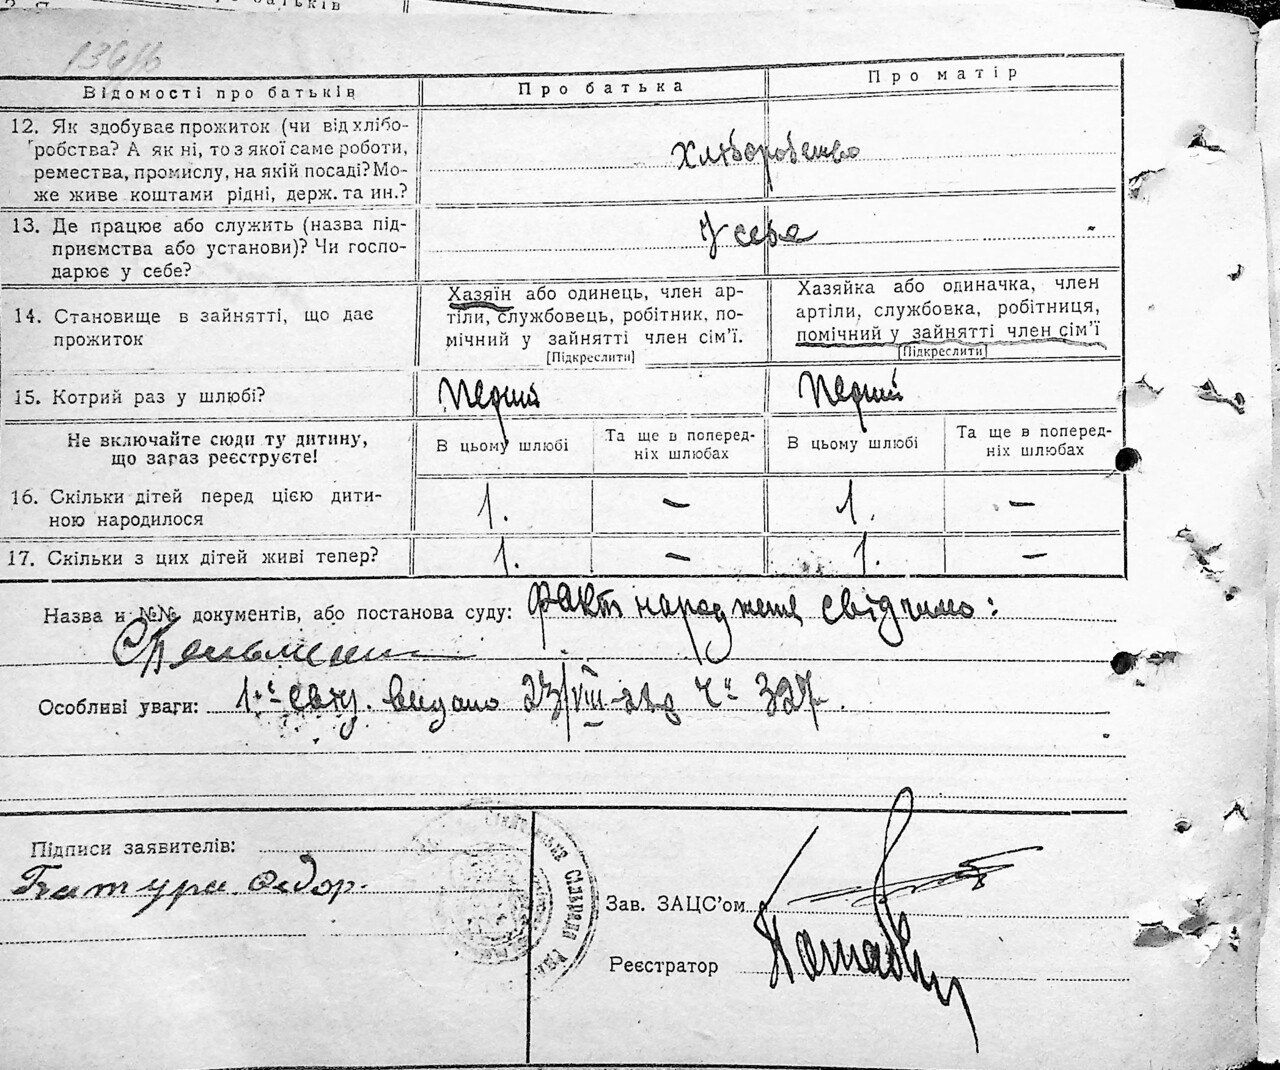 136/6
Відомості про батьків
Про батька
Про матір
12. Як здобуває прожиток (чи від хлібо-
робства? А як ні, то з якої саме роботи,
ремества, промислу, на якій посаді? Мо-
же живе коштами рідні, держ. та ин.?
Хліборобство
13. Де працює або служить (назва під-
приємства або установи)? Чи госпо-
дарює у себе?
У себе
14. Становище в зайнятті, що дає
прожиток
Хазяїн або одинець, член ар-
тіли, службовець, робітник, по-
мічний у зайнятті член сім’ї.
[Підкреслити]
Хазяйка або одиначка, член
артіли, службовка, робітниця,
помічний у зайнятті член сім’ї
[Підкреслити]
15. Котрий раз у шлюбі?
Перший
Перший
Не включайте сюди ту дитину,
що загаз реєструєте!
В цьому шлюбі
Та ще в поперед-
ніх шлюбах
В цьому шлюбі
Та ще в поперед-
ніх шлюбах
16. Скільки дітей перед цією дити-
ною народилося
1. — 1. —
17. Скільки з цих дітей живі тепер?
1. — 1. —
Назва и №№ документів, або постанова суду: Факт народження свідчимо:
Особливі уваги: видано 23/VIII 327.
Підписи заявителів:
Федор.
Зав. ЗАЦС’ом
Реєстратор